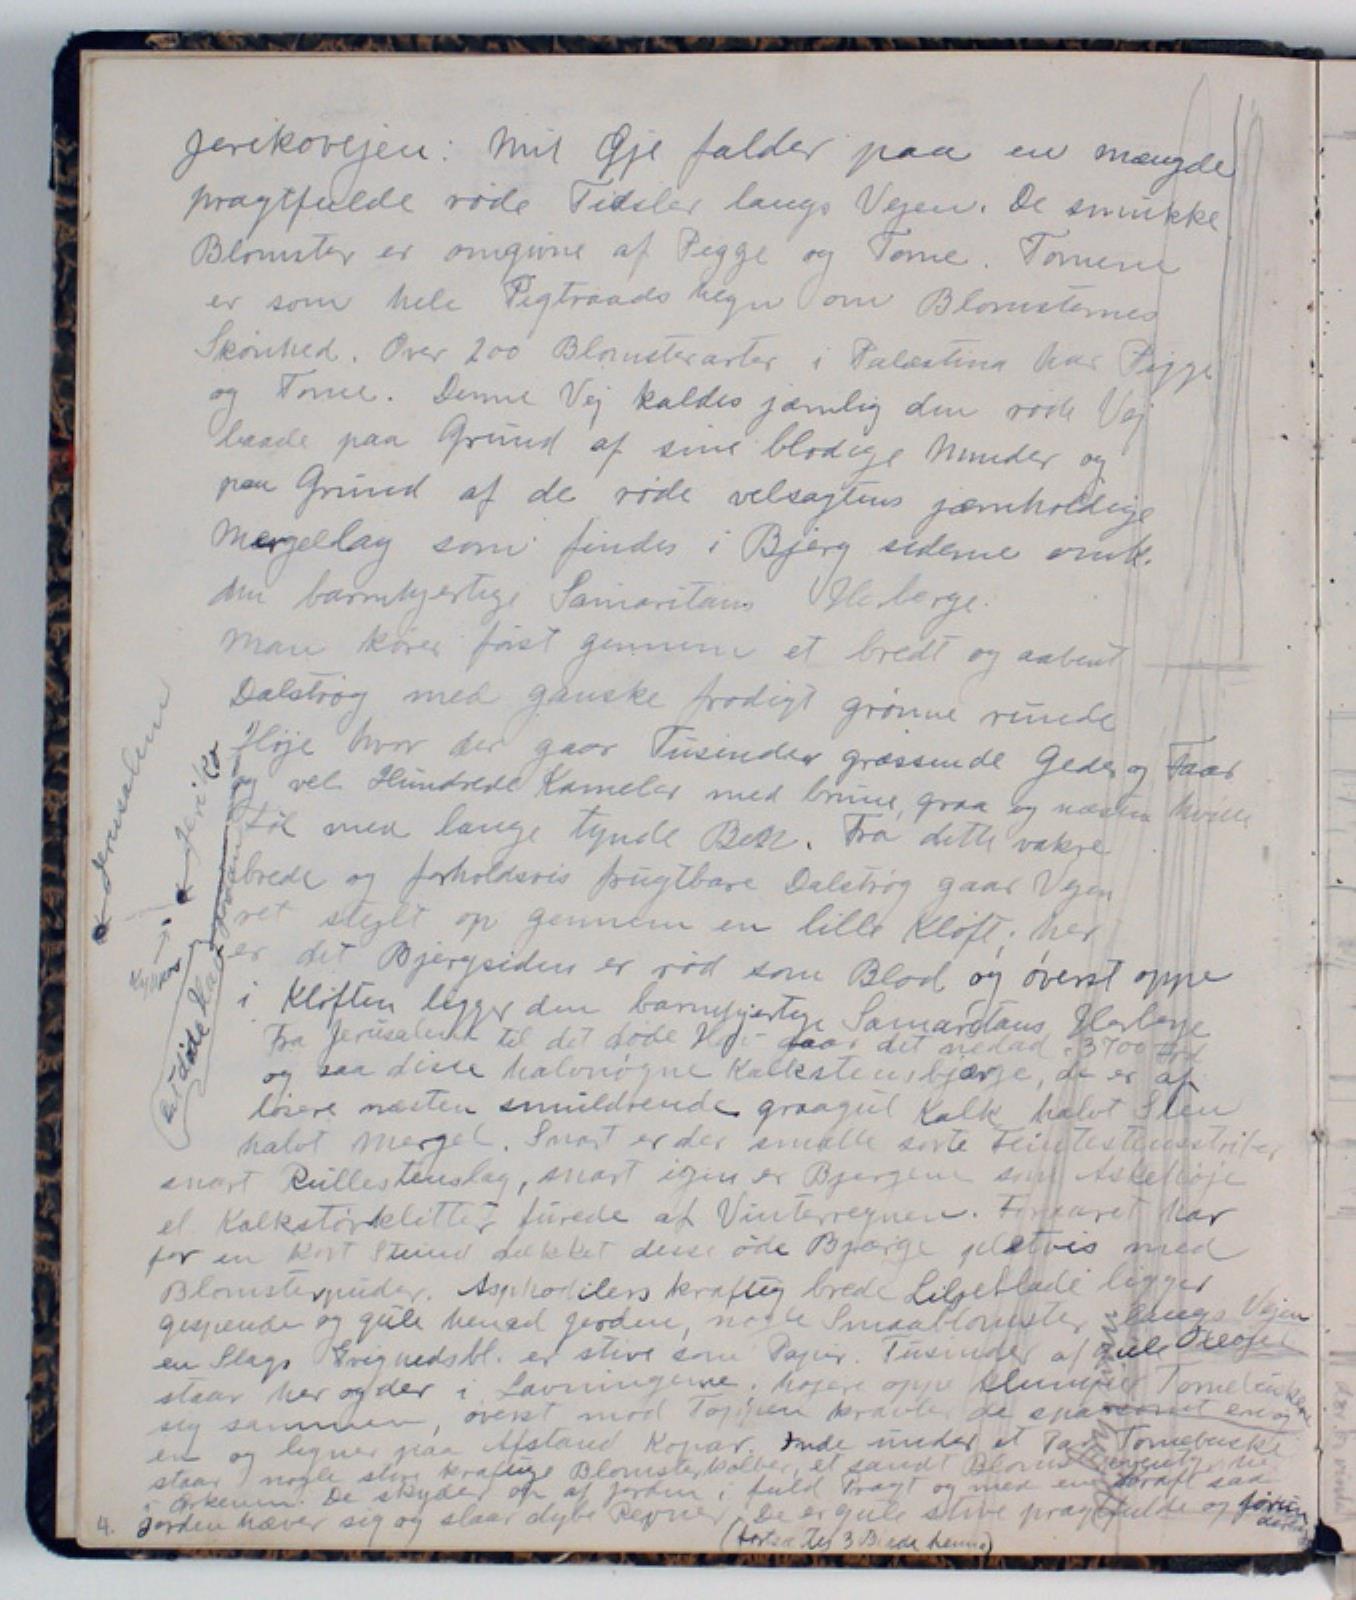 Jerikovejen: Mit Øje falder paa en mængde
pragtfulde røde Tidsler langs Vejen. De smukke
Blomster er omgivne af Pigge og Torne. Tornene
er som hele Pigtraads hegn om Blomsternes
Skønhed. Over 200 Blomsterarter i Palæstina har Pigge
og Torne. Denne Vej kaldes jævnlig den røde Vej
baade paa Grund af sine blodige Minder og
paa Grund af de røde velsagtens jærnholdige
Mergellag som findes i Bjerg siderne omk.
den barmhjertige Samaritans Herberge.
Man kører først gennem et bredt og aabent
Dalstrøg med ganske frodigt grønne runde
Høje hvor der gaar Tusinder græssende Geder og Faar
og vel Hundrede Kameler med brune, graa og næsten hvide
Føl med lange tynde Ben. Fra dette vakre
brede og forholdsvis frugtbare Dalstrøg gaar Vejen
ret stejlt op gennem en lille Kløft; her
er det Bjergsiden er rød som Blod og øverst oppe
i Kløften ligger den barmhjertige Samaritans Herberge
Fra Jerusalem til det døde Hav gaar det nedad 3700 Fod
og saa disse halvnøgne Kalkstensbjærge, de er af
løsere næsten smuldrende graagul Kalk halvt Sten
halvt Mergel. Snart er der smalle sorte Flintestensstriber
snart Rullestenslag, snart igen er Bjergene som Askehøje
el Kalkstørklitter furede af Vinterregnen. Foraaret har
for en kort Stund dækket disse øde Bjærge pletvis med
Blomsterpuder. Asphodilens kraftig brede Liljeblade ligger
og gule henad Jorden, nogle Smaablomster langs Vejen
en Slags Evighedsbl. er stive som Papir. Tusinder af gule
staar her og der i Lavningerne, højere oppe klumper Tornebuskene
sig sammen, øverst mod Toppen kravler de sparsomt en og
en og ligner paa Afstand Kopar. Inde under et Par Tornebuske
staar nogle store kraftige Blomsterkolber, et sandt Blomstereventyr her
i Ørkenen. De skyder op af Jorden i fuld Pragt og med en Kraft saa
4. Jorden hæver sig og slaar dybe Revner. De er gule stive pragtfulde og forun
derlige
(fortsættes 3 Blade henne)
Jerusalem
Jeriko
Jordan
det døde Hav